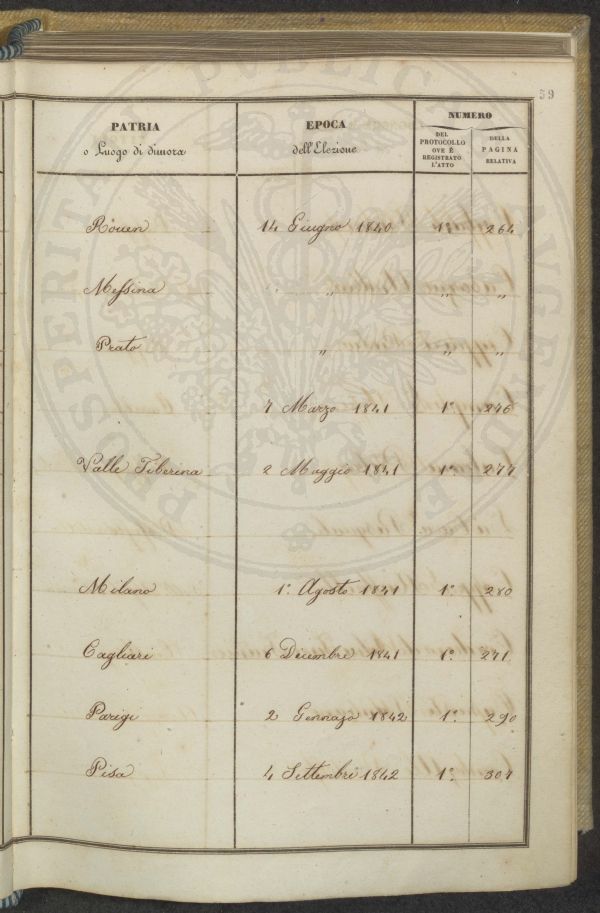 59
PATRIA
o Luogo di dimora
EPOCA
dell'Elezione
NUMERO
DEL
PROTOCOLLO
OVE È
REGISTRATO
L'ATTO
DELLA
PAGINA
RELATIVA
Rouen 14 Giugno 1840 1° 264
Messina „ „ „
Prato „ „ „
7 Marzo 1841 1° 276
Valle Tiberina 2 Maggio 1841 1° 277
Milano 1° Agosto 1841 1° 280
Cagliari 6 Dicembre 1841 1° 271
Parigi 2 Gennajo 1842 1° 290
Pisa 4 Settembre 1842 1° 307